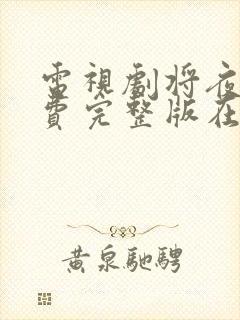 電視劇將夜
費完整版在
黃泉馳騁